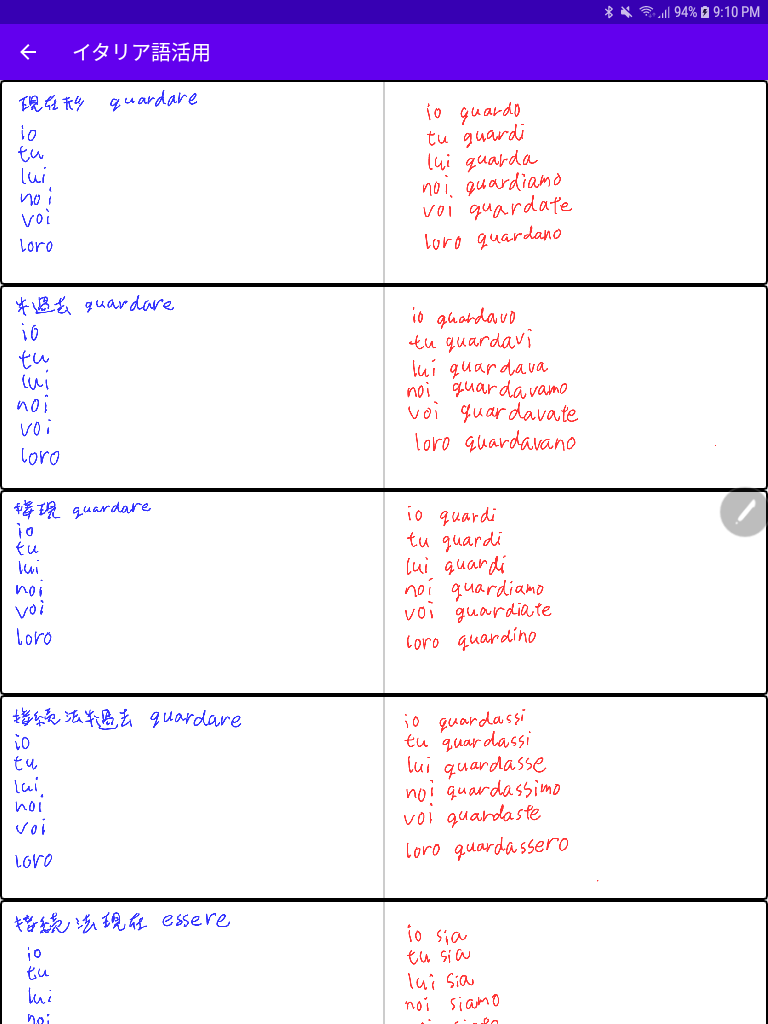 9:10 PM
94%
イタリア語活用
現在形 guardare
io
tu
lui
noi
voi
loro
io guardo
tu guardi
lui guarda
noi guardiamo
voi guardate
loro guardano
半過去 guardare
io
tu
lui
noi
voi
loro
io guardavo
tu guardavi
lui guardava
noi guardavamo
voi guardavate
loro guardavano
接現 guardare
io
tu
lui
noi
voi
loro
io guardi
tu guardi
lui guardi
noi guardiamo
voi guardiate
loro guardino
接続法半過去 guardare
io
tu
lui
noi
voi
loro
io guardassi
tu guardassi
lui guardasse
noi guardassimo
voi guardaste
loro guardassero
接続法現在 essere
io
tu
lui
noi
io sia
tu sia
lui sia
noi siamo